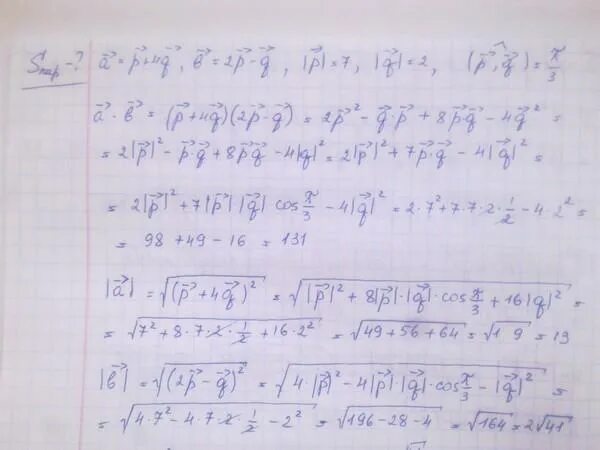 Sпар-? a⃗ = p⃗+4q⃗, b⃗ = 2p⃗-q⃗, |p⃗|=7, |q⃗|=2, (p⃗,^q⃗) = π/3
a⃗ · b⃗ = (p⃗+4q⃗)(2p⃗-q⃗) = 2p⃗² - q⃗·p⃗ + 8p⃗q⃗ - 4q⃗² =
= 2|p⃗|² - p⃗·q⃗ + 8p⃗q⃗ - 4|q⃗|² = 2|p⃗|² + 7p⃗·q⃗ - 4|q⃗|² =
= 2|p⃗|² + 7|p⃗|·|q⃗| cos π/3 - 4|q⃗|² = 2·7² + 7·7·2·1/2 - 4·2² =
= 98 + 49 - 16 = 131
|a⃗| = √((p⃗+4q⃗)²) = √(|p⃗|² + 8|p⃗|·|q⃗|·cos π/3 + 16|q⃗|²) =
= √(7² + 8·7·2·1/2 + 16·2²) = √(49+56+64) = √(1 9) = 13
|b⃗| = √((2p⃗-q⃗)²) = √(4·|p⃗|² - 4|p⃗|·|q⃗|·cos π/3 - |q⃗|²) =
= √(4·7² - 4·7·2·1/2 - 2²) = √(196-28-4) = √164 = 2√41